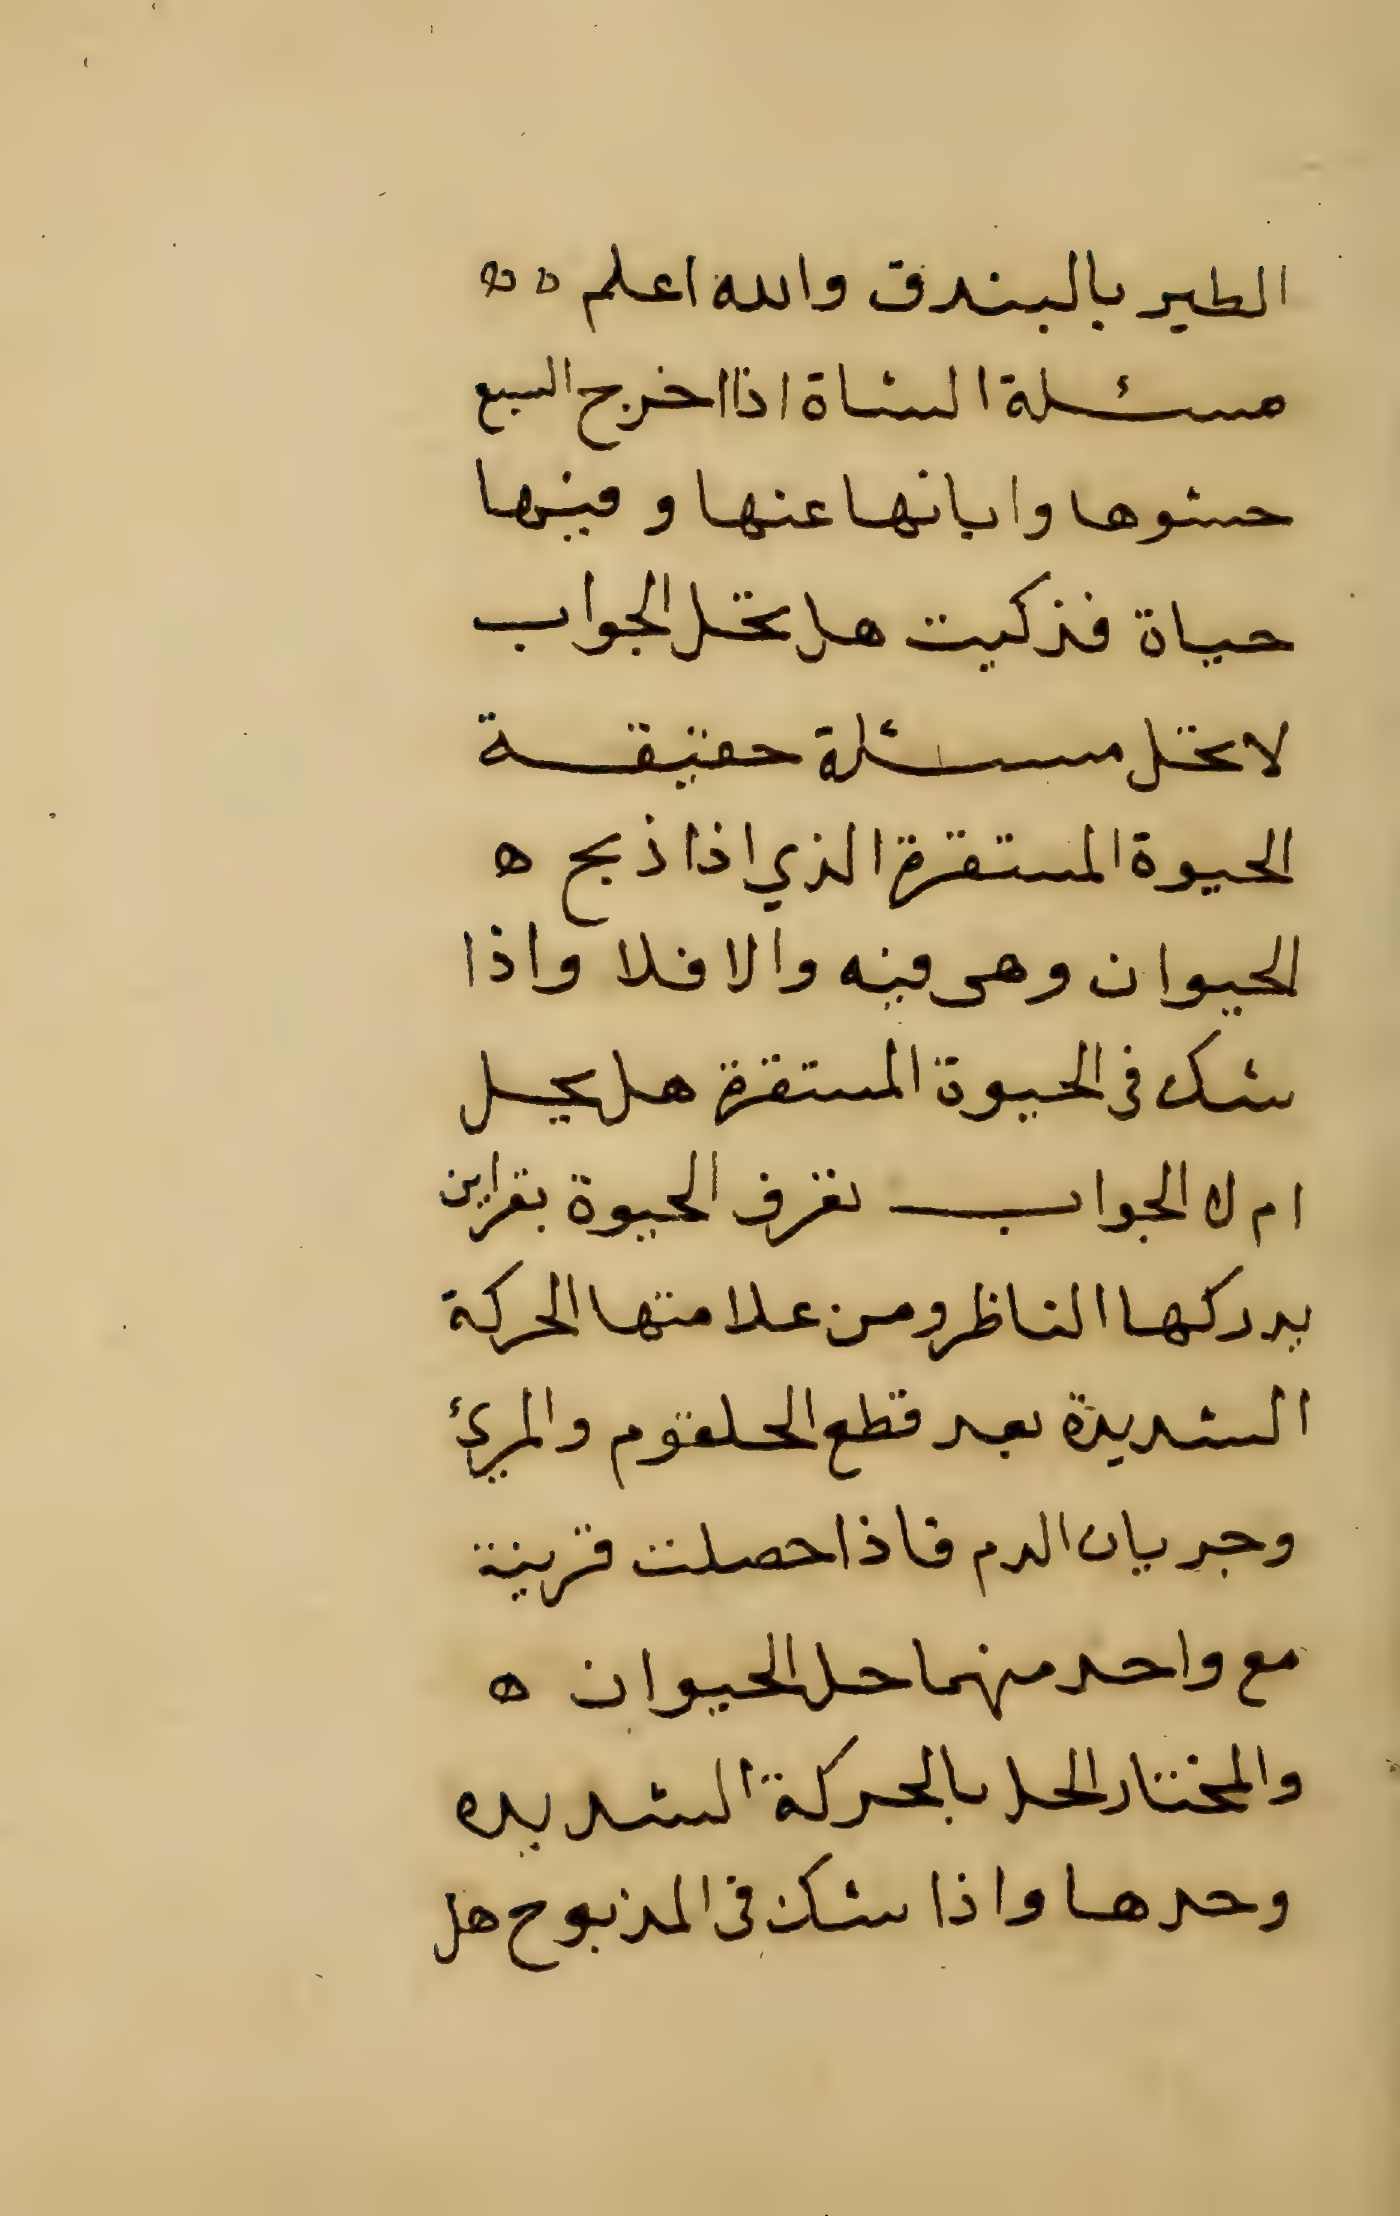 الطير بالبندق والله اعلم ه ه
مسئلة الشاة اذا اخرج السبع
حشوها وابانها عنها وفيها
حياة فذكيت هل تحل الجواب
لا تحل مسئلة حقيقة
الحيوة المستقرة الذي اذا ذبح ه
الحيوان وهى فيه والا فلا واذا
شك فى الحيوة المستقرة هل يحل
ام لا الجواب تعرف الحيوة بقراين
يدركها الناظر ومن علامتها الحركة
الشديدة بعد قطع الحلقوم والمرئ
وجريان الدم فاذا حصلت قرينة
مع واحد منهما حل الحيوان ه
والمختار الحل بالحركة الشديده
وحدها واذا شك فى المذبوح هل